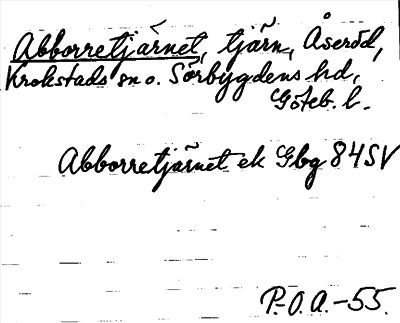 Abborretjärnet, tjärn, Åseröd,
Krokstads sn o. Sörbygdens hd,
Göteb. l.
Abborretjärnet ek Gbg 84SV
P.O.A.-55.